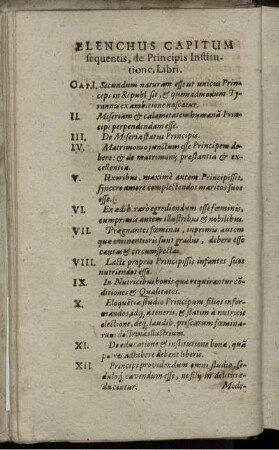 ELENCHUS CAPITUM
sequentis, de Principis Institu-
tione, Libri.
CAP. I. Secundum naturam esse ut unicus Prin-
ceps in Republ. sit, & quemadmodum Ty-
rannis ex ambitione nascatur.
II. Miseriam & calamitatem humanā Prin-
cipi perpendendam esse.
III. De Miseria status Principis.
IV. Matrimonio junctum esse Principem de-
bere: & de matrimonij præstantia & ex-
cellentia.
V. Uxoribus, maximè autem Principissis,
syncero amore complectendos maritos suos
esse.
VI. Ex ædib. rarò egrediendum esse fœminis,
cumprimis autem illustribus & nobilibus.
VII. Prægnantes fœminas, inprimis autem
quæ eminentioris sunt gradus, debere esse
cautas & circumspectas.
VIII. Lacte proprio Principissis infantes suos
nutriendos esse.
IX. In Nutricibus bonis quæ requirantur cō-
ditiones & Qualitates.
X. Eloquētiæ studiu Principum filios infor-
mandos, idq́, à teneris, & statim à nutricis
electione, deq́, laudib. priscarum fœmina-
rum doctrina illustrium.
XI. De educatione & institutione bona, quā
patres adhibere debent liberis.
XII. Principi providendum omni studio, se-
dulòq́; cavendum esse, ne filij in delitiis e-
ducantur.
Mode-